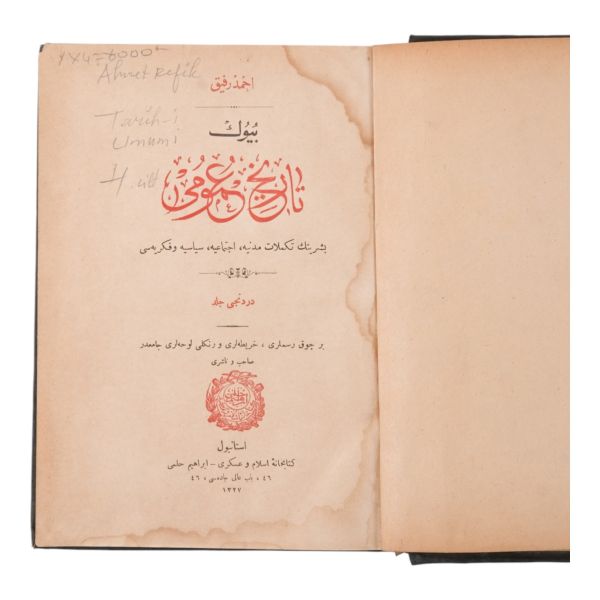 1x4=6000
Ahmet Refik
Tarih-i
Umumi
4. cilt
احمد رفيق
بيوك
تاريخ عمومى
بشريتك تكملات مدنيه، اجتماعيه، سياسيه و فكريه‌سى
دردنجى جلد
بر چوق رسملرى، خريطه‌لرى و رنكلى لوحه‌لرى جامعدر
صاحب و ناشرى
استانبول
كتابخانهٔ اسلام و عسكرى – ابراهيم حلمى
٤٦، باب عالى جاده‌سى، ٤٦
١٣٢٧